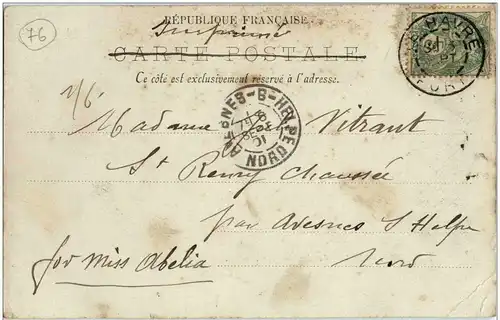 76
RÉPUBLIQUE FRANÇAISE
Imprimé
CARTE POSTALE
Ce côté est exclusivement réservé à l'adresse.
HAVRE
AVESNES-S-HELPE
SEPT
01
NORD
Madame Vitrant
St Remy Chaussée
par Avesnes S Helpe
Nord
for Miss Abelia